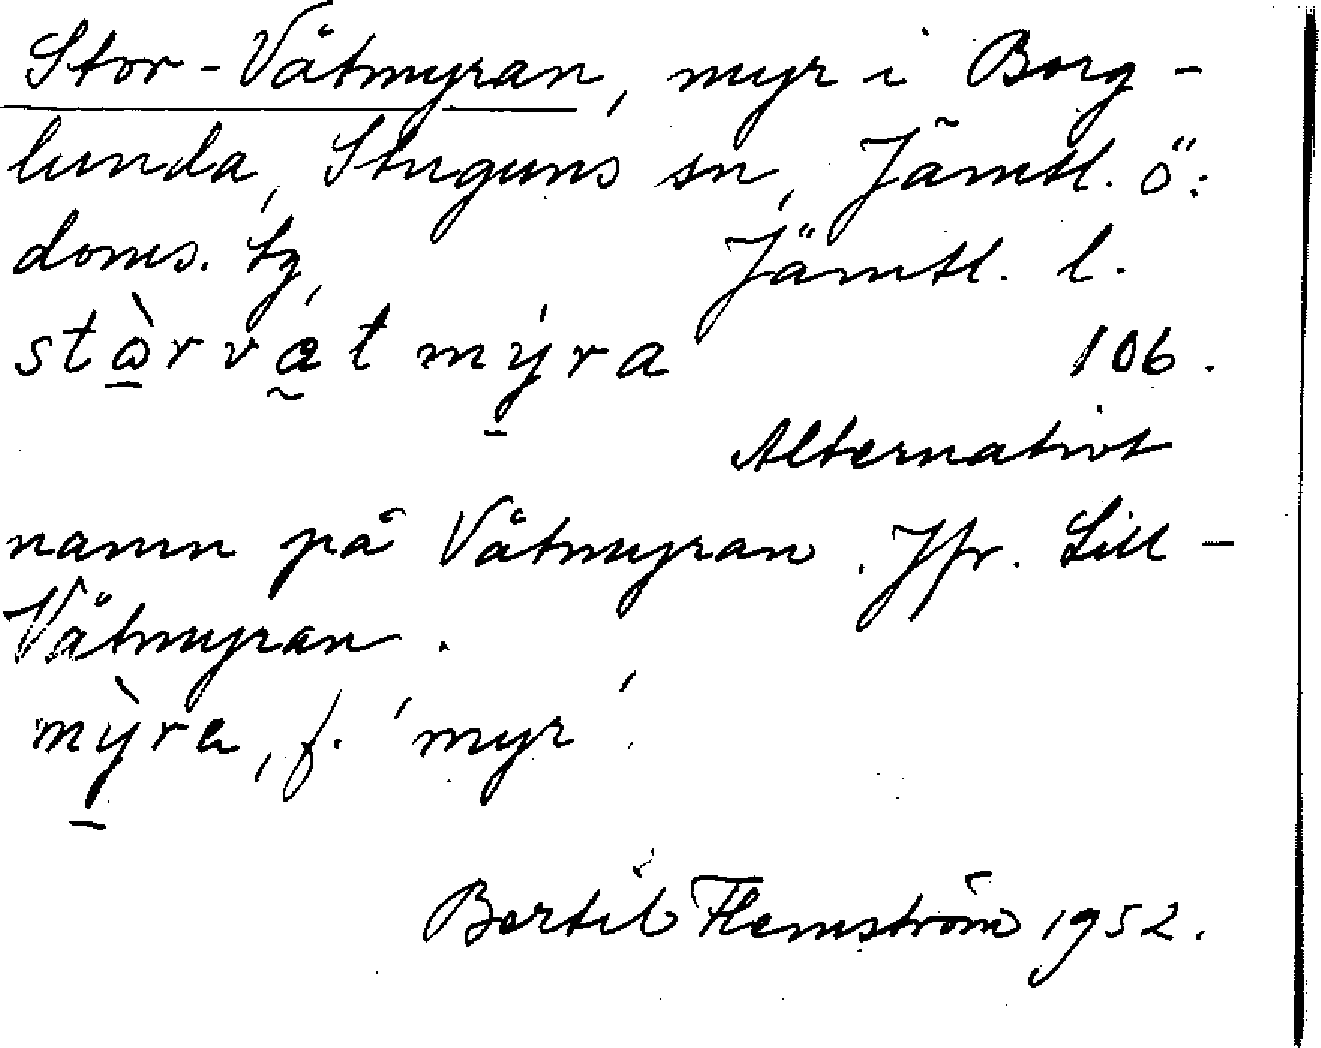 Stor-Våtmyran, myr i Borg-
lunda, Stuguns sn, Jämtl. ö:
doms. tg, Jämtl. l.
stòrvat mýra 106.
Alternativt
namn på Våtmyran. Jfr. Lill-
Våtmyran.
mỳra, f. 'myr'.
Bertil Flemström 1952.